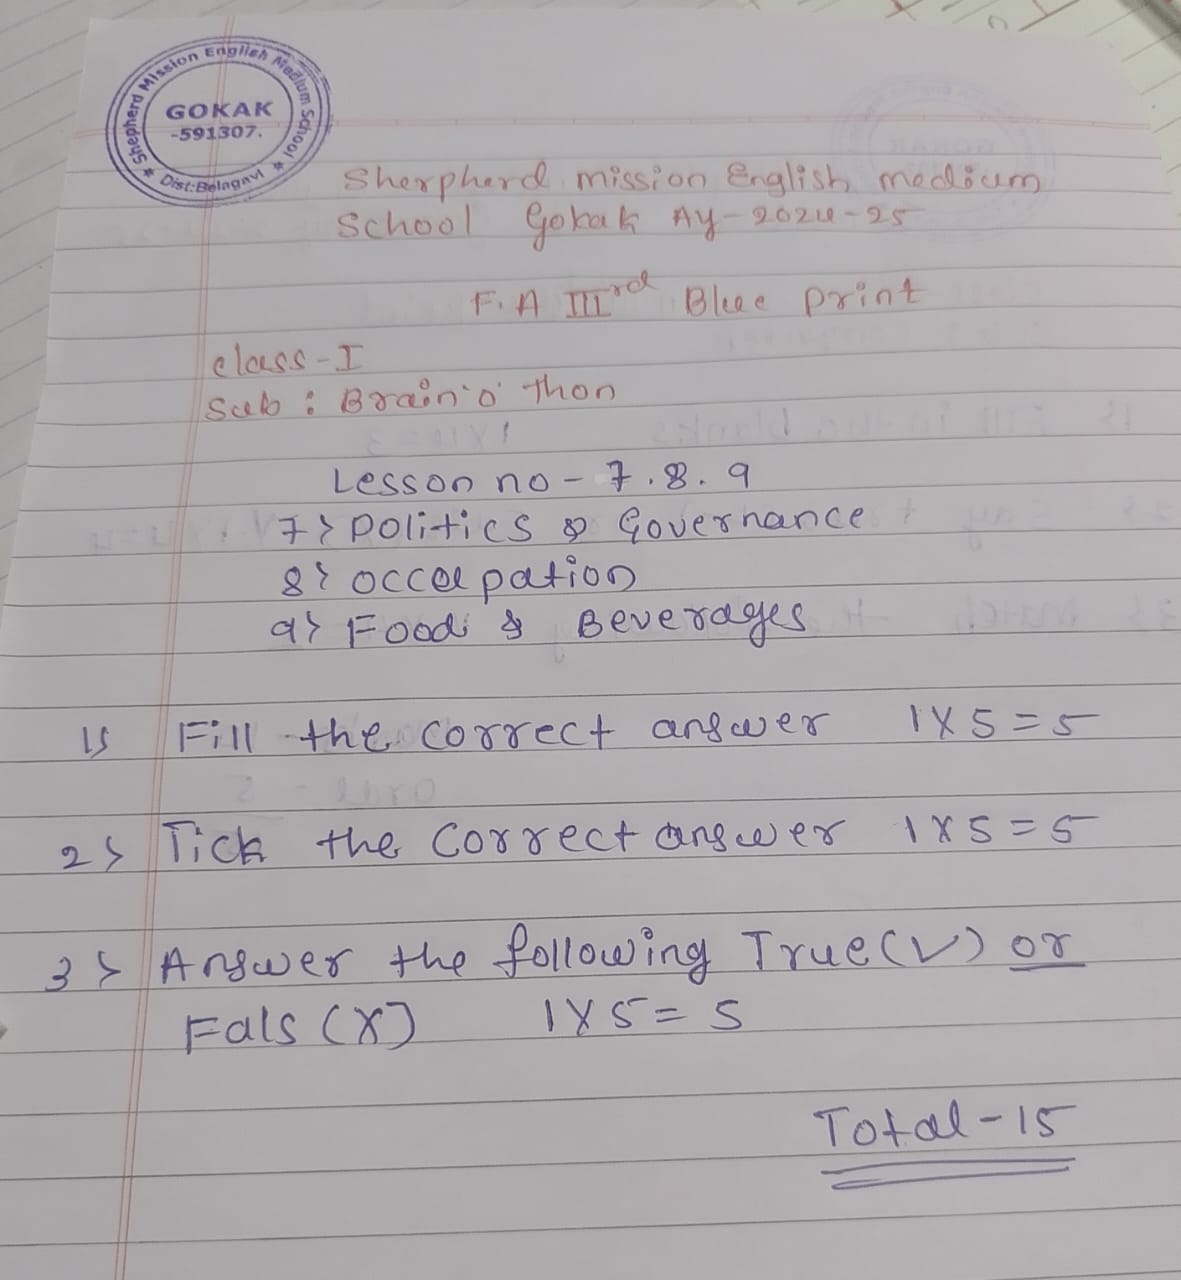 Shepherd Mission English Medium School
GOKAK
-591307.
Dist:Belagavi
Sherpherd mission English medium
School Gokak AY-2024-25
F.A IIIrd Blue print
class-I
Sub : Brain'o' Thon
Lesson no - 7.8.9
7> Politics & Governance
8> occupation
9> Food & Beverages
1> Fill the correct answer 1X5=5
2> Tick the correct answer 1X5=5
3> Answer the following True(✓) or
Fals (X) 1X5=5
Total-15